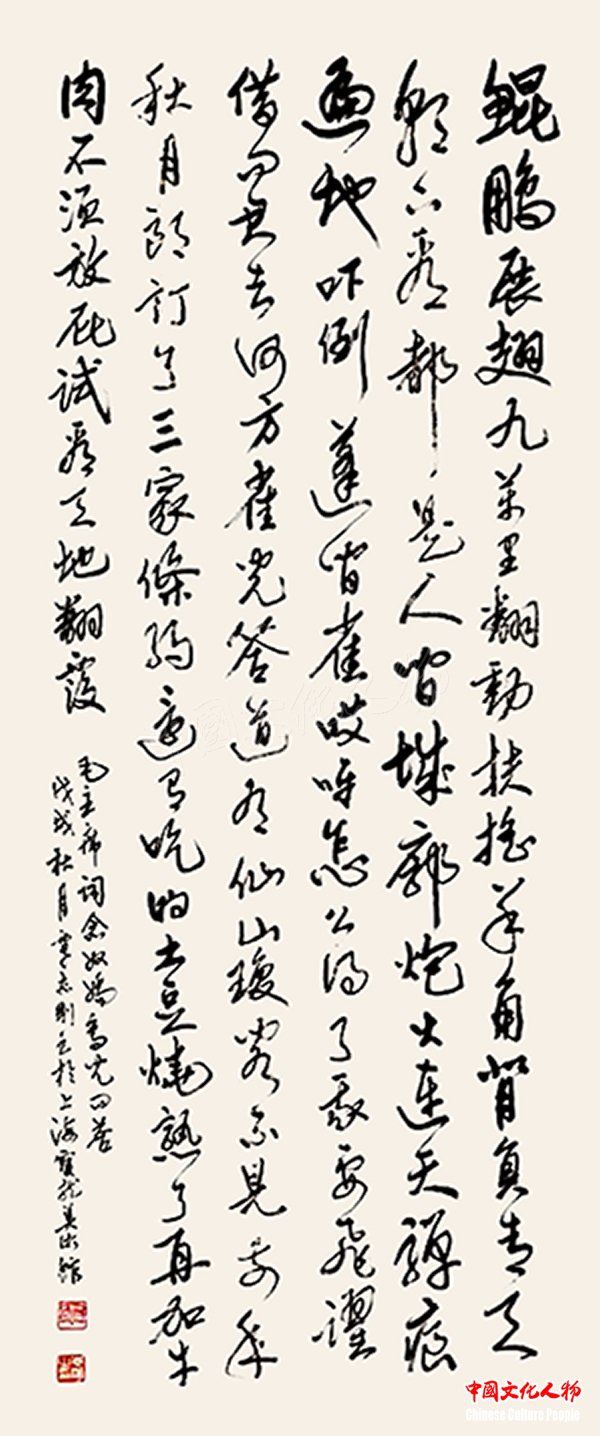 鯤鵬展翅九萬里翻動扶搖羊角背負青天
朝下看都是人間城郭炮火連天彈痕
遍地吓倒蓬間雀哎呀怎么得了我要飛躍
借問君去何方雀兒答道有仙山瓊閣不見前年
秋月朗訂了三家條約還有吃的土豆燒熟了再加牛
肉不須放屁試看天地翻覆
毛主席詞念奴嬌鳥兒問答
戊戌秋月志剛於上海寶龍美術館
中国文化人物
Chinese Culture People